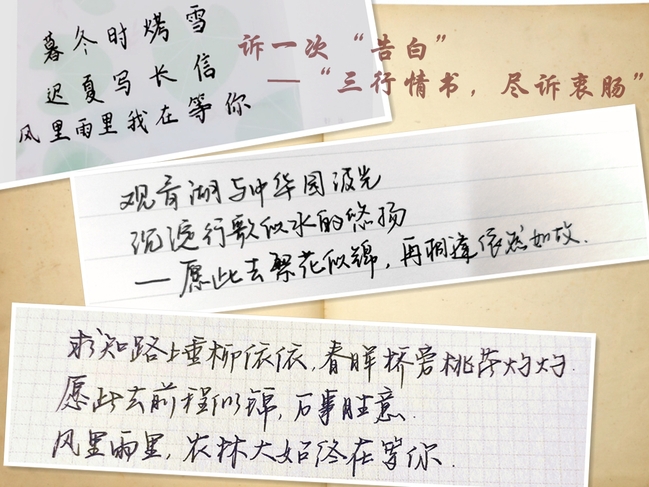 暮冬时烤雪
迟夏写长信
风里雨里我在等你
诉一次“告白”
——“三行情书，尽诉衷肠”
观音湖与中华园波光
沉淀行歌似水的悠扬
—愿此去繁花似锦，再相逢依然如故.
求知路上垂柳依依，春晖桥旁桃花灼灼.
愿此去前程似锦，万事胜意.
风里雨里，农林大始终在等你.